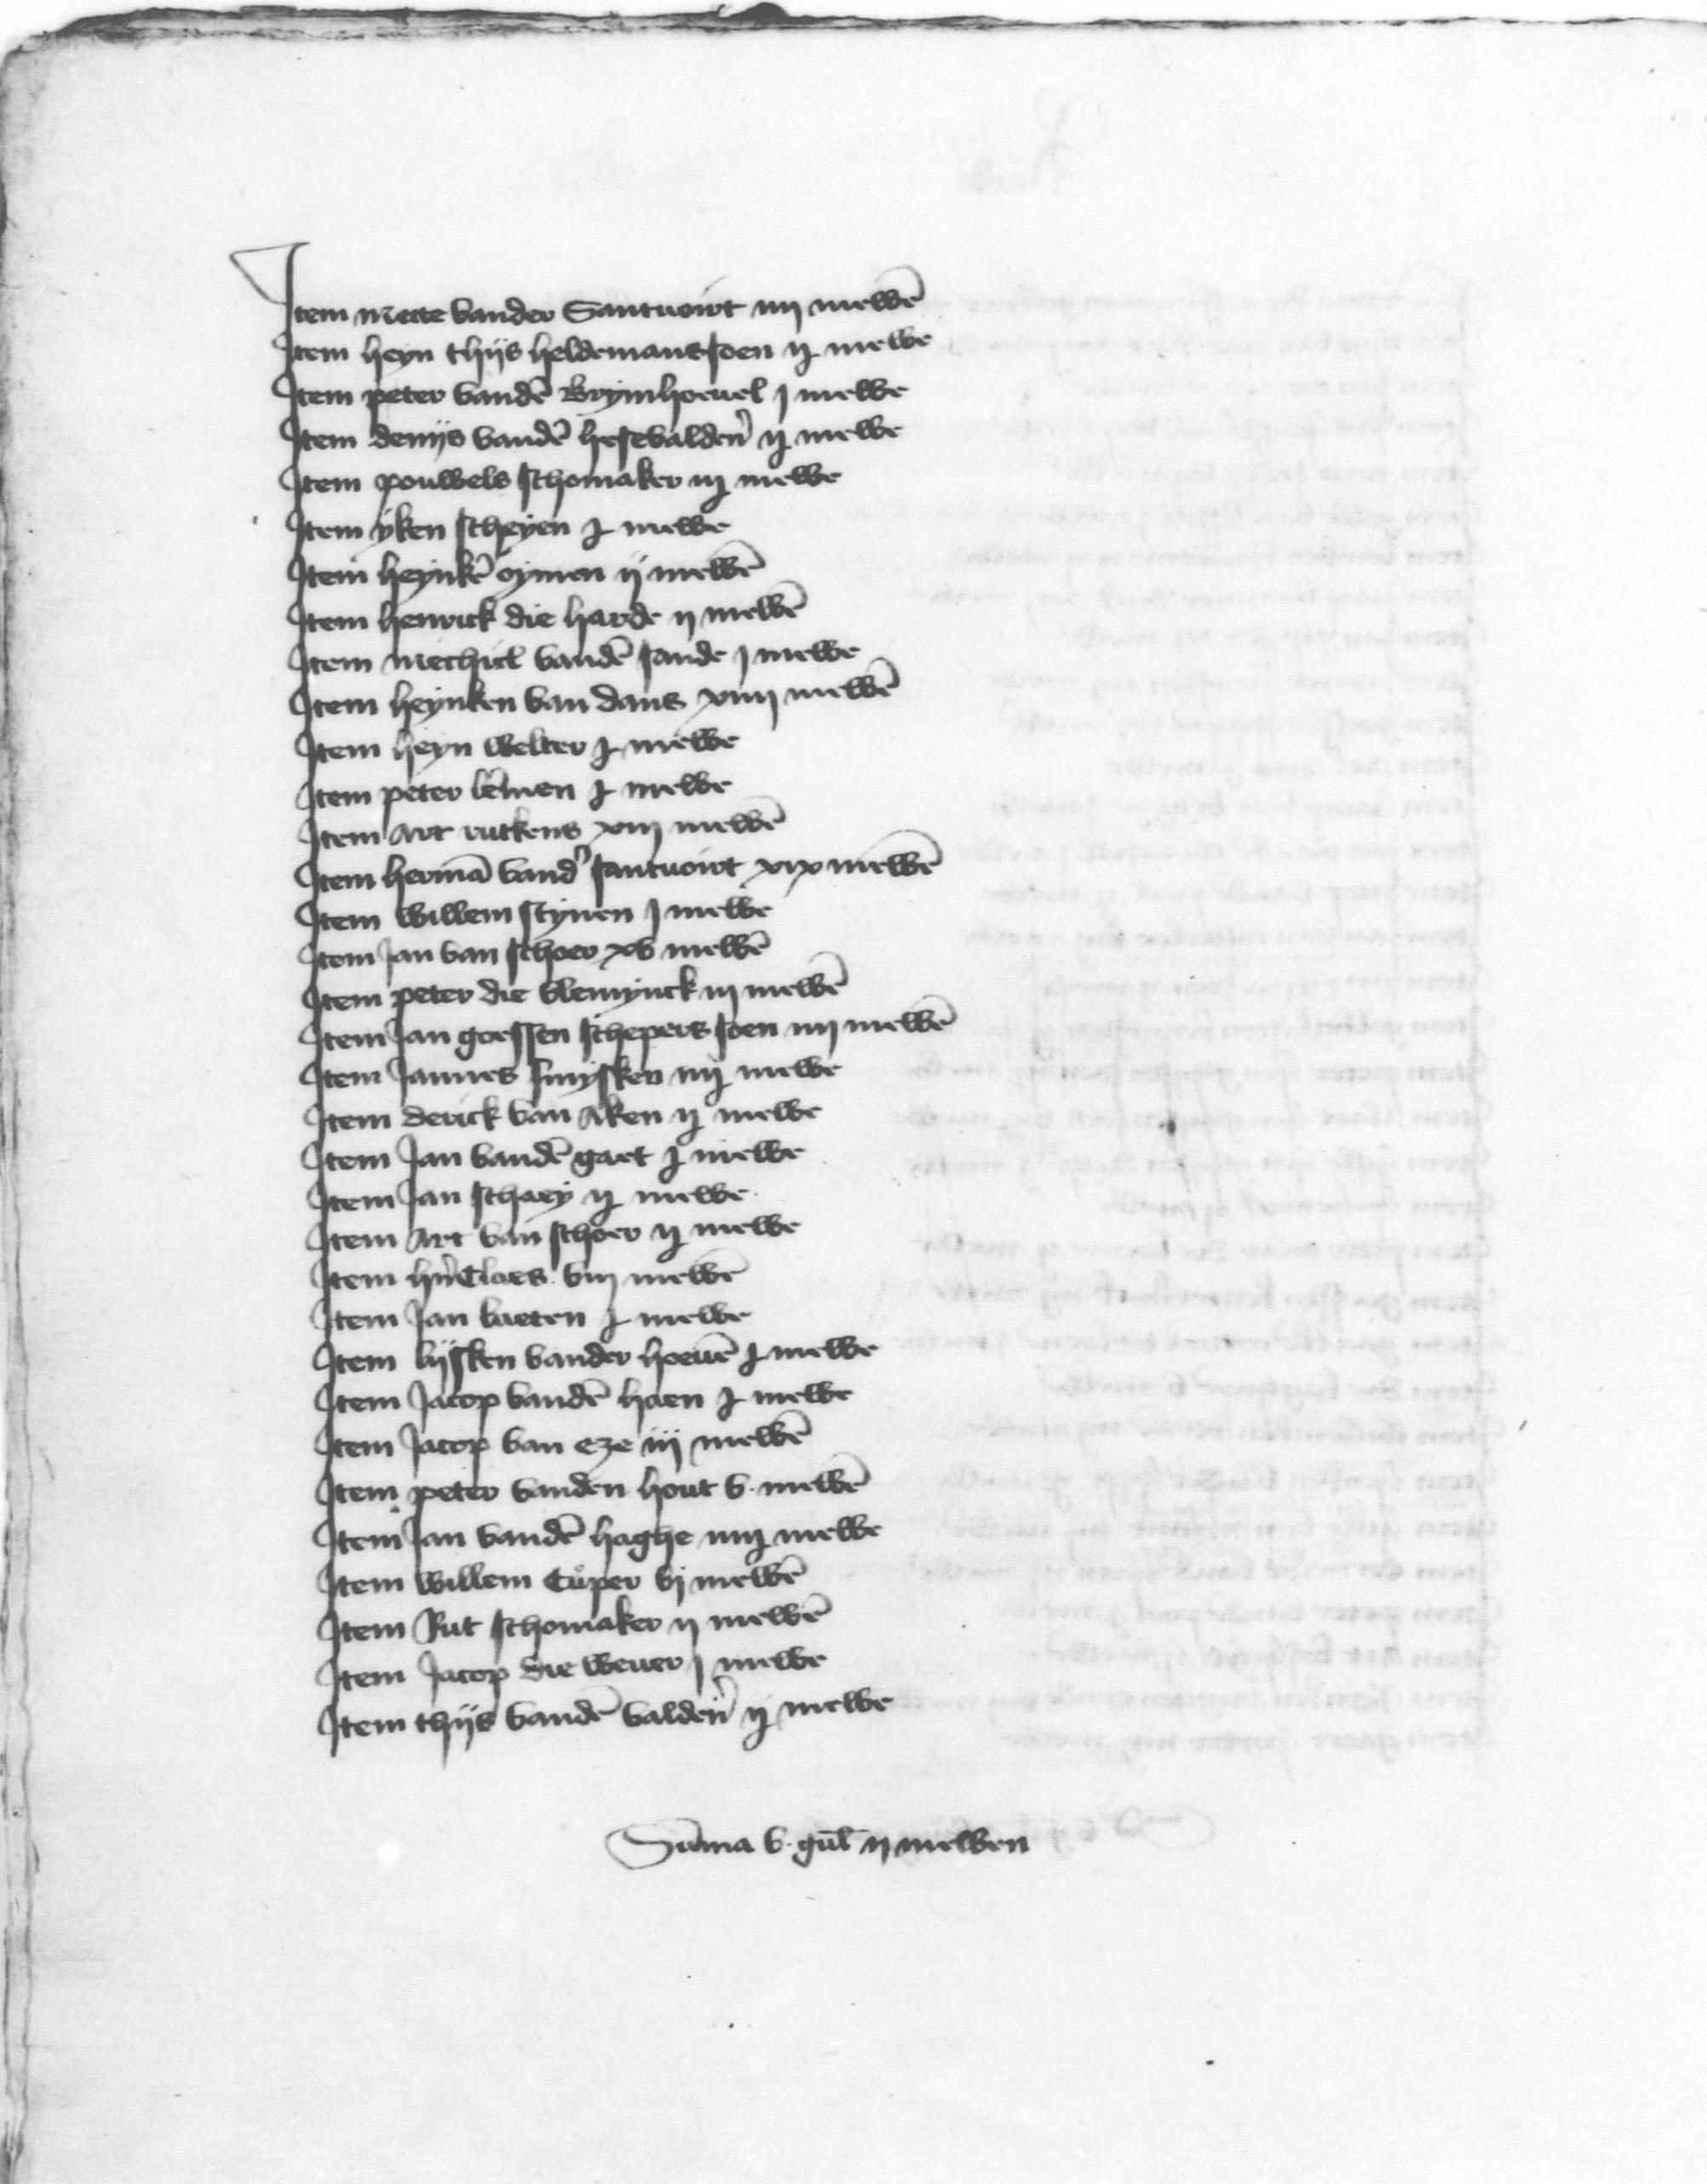 Item mette vander Santuoirt iiij mewē
Item heyn thijs heldemanssoen ij mewe
Item peter vandē Brymhoeuel j mewe
Item denijs vandē hesevalden̄ ij mewe
Item pouwels schomaker iij mewe
Item ÿken scheyen j mewe
Item heynkē oymen ij mewē
Item henrick die harde ij mewē
Item mechtel vandē sande j mewe
Item heynken van dans xiiij mewē
Item heyn welter j mewe
Item peter lēmen j mewe
Item Art rutkens xiij mewē
Item hermā vand' santuoirt xix mewē
Item willem stynen j mewe
Item Jan van schoer xv mewē
Item peter die vlemynck iij mewē
Item Jan goessen schepers soen iiij mewē
Item Jannes smysken iiij mewe
Item derick van Aken ij mewe
Item Jan vandē gaet j mewe
Item Jan schaey ij mewe
Item Art van schoer ij mewe
Item hn̄ Claes viij mewē
Item Jan baeten j mewe
Item lijsken vander hoeuē j mewe
Item Jacop vandē haen j mewe
Item Jacop van eze iij mewē
Item peter vanden hout v. mewē
Item Jan vandē haghe iiij mewe
Item willem Cůper vj mewē
Item Rut schomaker ij mewē
Item Jacop die weuer j mewe
Item thijs vandē valden̄ ij mewe
Sūma v. gul̄ ij mewen